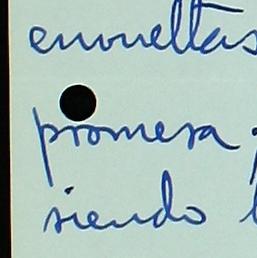 envueltas
promesa
siendo